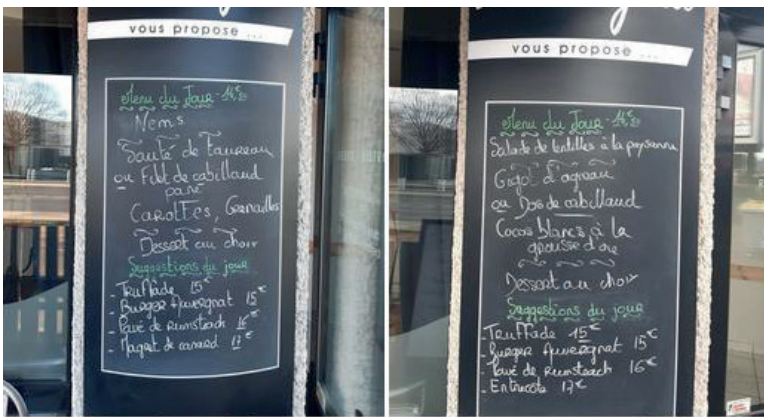 vous propose ...
Menu du Jour - 14€
Nems
Sauté de Taureau
ou Filet de cabillaud
pané
Carottes, Grenailles
Dessert au choix
Suggestions du jour
- Truffade 15€
- Burger Auvergnat 15€
- Pavé de rumsteack 16€
- Magret de canard 17€
vous propose ...
Menu du Jour -
Salade de lentilles à la paysanne
Gigot d'agneau
ou Dos de cabillaud
Cocos blancs à la
gousse d'ail
Dessert au choix
Suggestions du jour
- Truffade 15€
- Burger Auvergnat 15€
- Pavé de Rumsteack 16€
- Entrecote 17€